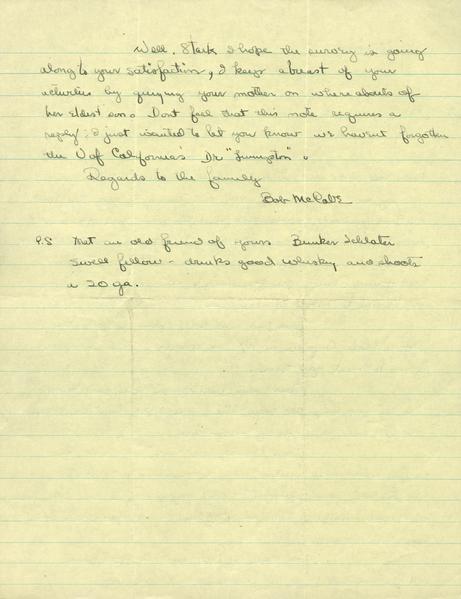 Well, Stark I hope the survey is going
along to your satisfaction, I keep abreast of your
activities by quizing your mother on where abouts of
her eldest son. Dont feel that this note requires a
reply; I just wanted to let you know we havent forgotten
the U of California's Dr "Livingston".
Regards to the family
Bob McCabe
P.S Met an old friend of yours Bunker Schlater
swell fellow - drinks good whiskey and shoots
a 20 ga.